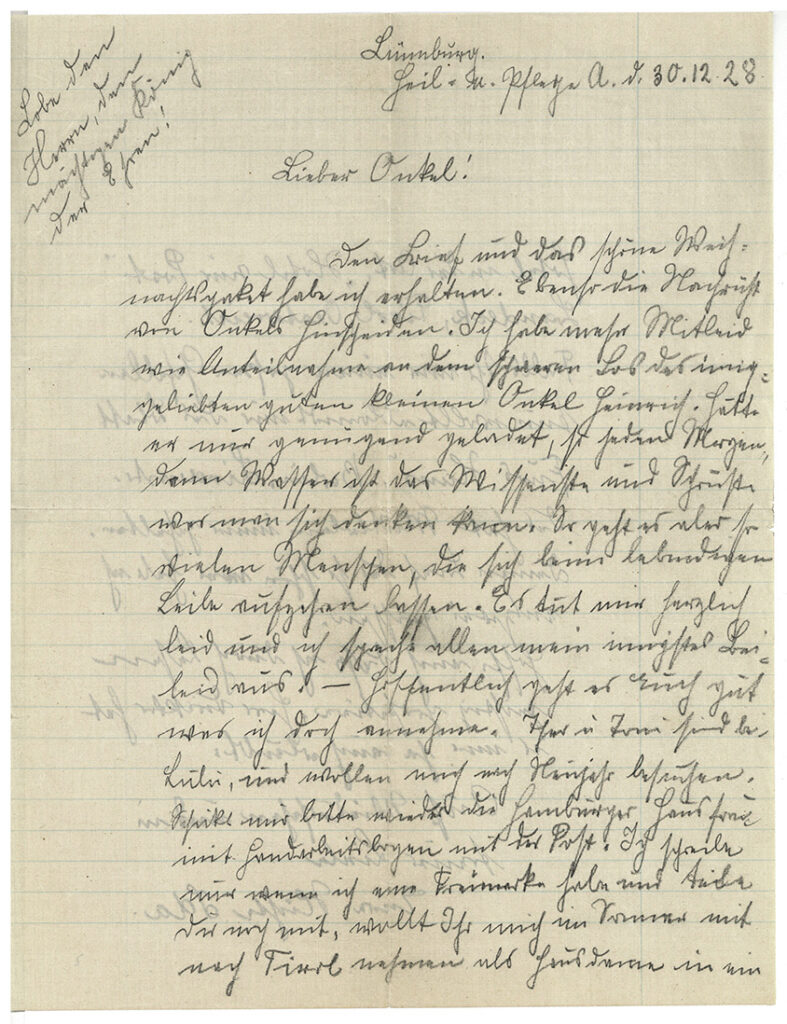 Lobe den
Herrn, den
mächtigen König
der Ehren!
Lünnburg.
Heil- u. Pflege A. d. 30.12.28.
Lieber Onkel!
Den Brief und das schöne Weih-
nachtspaket habe ich erhalten. Ebenso die Nachricht
von Onkels Hinscheiden. Ich habe mehr Mitleid
wie Anteilnahme an dem schweren Los des innig-
geliebten guten kleinen Onkel Heinrich. Hätte
er nur genügend gebadet, so jeden Morgen,
denn Wasser ist das und
was man sich denken kann. So geht es aber so
vielen Menschen, die sich beim lebendigen
Leibe aufzehren lassen. Es tut mir herzlich
leid und ich spreche allen mein innigstes Bei-
leid aus! — Hoffentlich geht es Euch gut
was ich doch annehme. u Toni sind bei
Lulu, und wollen mich nach Neujahr besuchen.
Schickt mir bitte wieder die Hamburger Hausfrau
mit Handarbeitsbogen mit der Post. Ich schreibe
nur wenn ich eine Freimarke habe und teile
Dir noch mit, wollt Ihr mich im Sommer mit
nach Tirol nehmen als Hausdame in ein